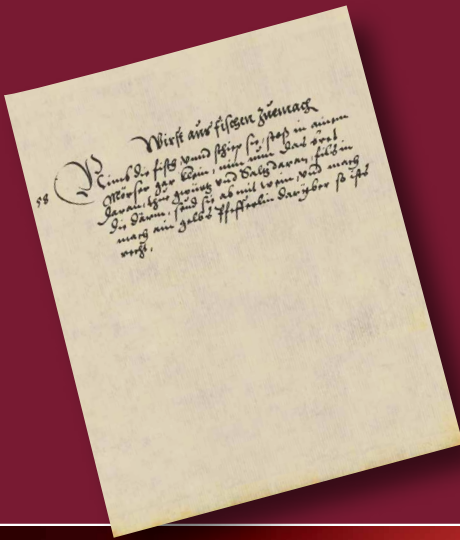 Wirst aus fischen zuemach
58 Nim die fisch vnnd schip sy, stoß in ainem
Mörser gar klein, nim nun das brot
daran, thue gewürtz vnd Saltz daran, fills in
die därm, seud sie ab mit wein, vnd mach
mach ain gelbs Pfefferlin darüber so ists
recht.